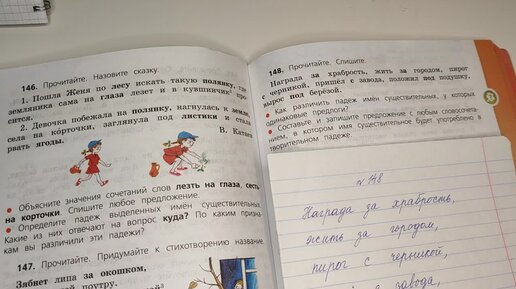 146. Прочитайте. Назовите сказку.
1. Пошла Женя по лесу искать такую полянку, где
земляника сама на глаза лезет и в кувшинчик про-
сится.
2. Девочка побежала на полянку, нагнулась к земле,
села на корточки, заглянула под листики и стала
рвать ягоды.
В. Катаев
● Объясните значения сочетаний слов лезть на глаза, сесть
на корточки. Спишите любое предложение.
● Определите падеж выделенных имён существительных.
Какие из них отвечают на вопрос куда? По каким призна-
кам вы различили эти падежи?
147. Прочитайте. Придумайте к стихотворению название.
Зябнет липа за окошком,
поутру.
148. Прочитайте. Спишите.
Награда за храбрость, жить за городом, пирог
с черникой, пришёл с завода, положил под подушку,
вырос под берёзой.
● Как различить падеж имён существительных, у которых
одинаковые предлоги?
● Составьте и запишите предложение с любым словосочета-
нием, в котором имя существительное будет употреблено в
творительном падеже.
№ 148
Награда за храбрость,
жить за городом,
пирог с черникой,
завода,